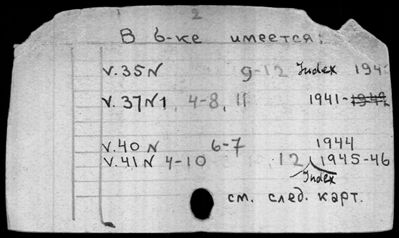 2
В б-ке имеется:
V.35 N 9-12 Index 194
V.37 N1, 4-8, 11 1941-1942
V.40 N 6-7 1944
V.41 N 4-10 12, 1945-46
Index
см. след. карт.